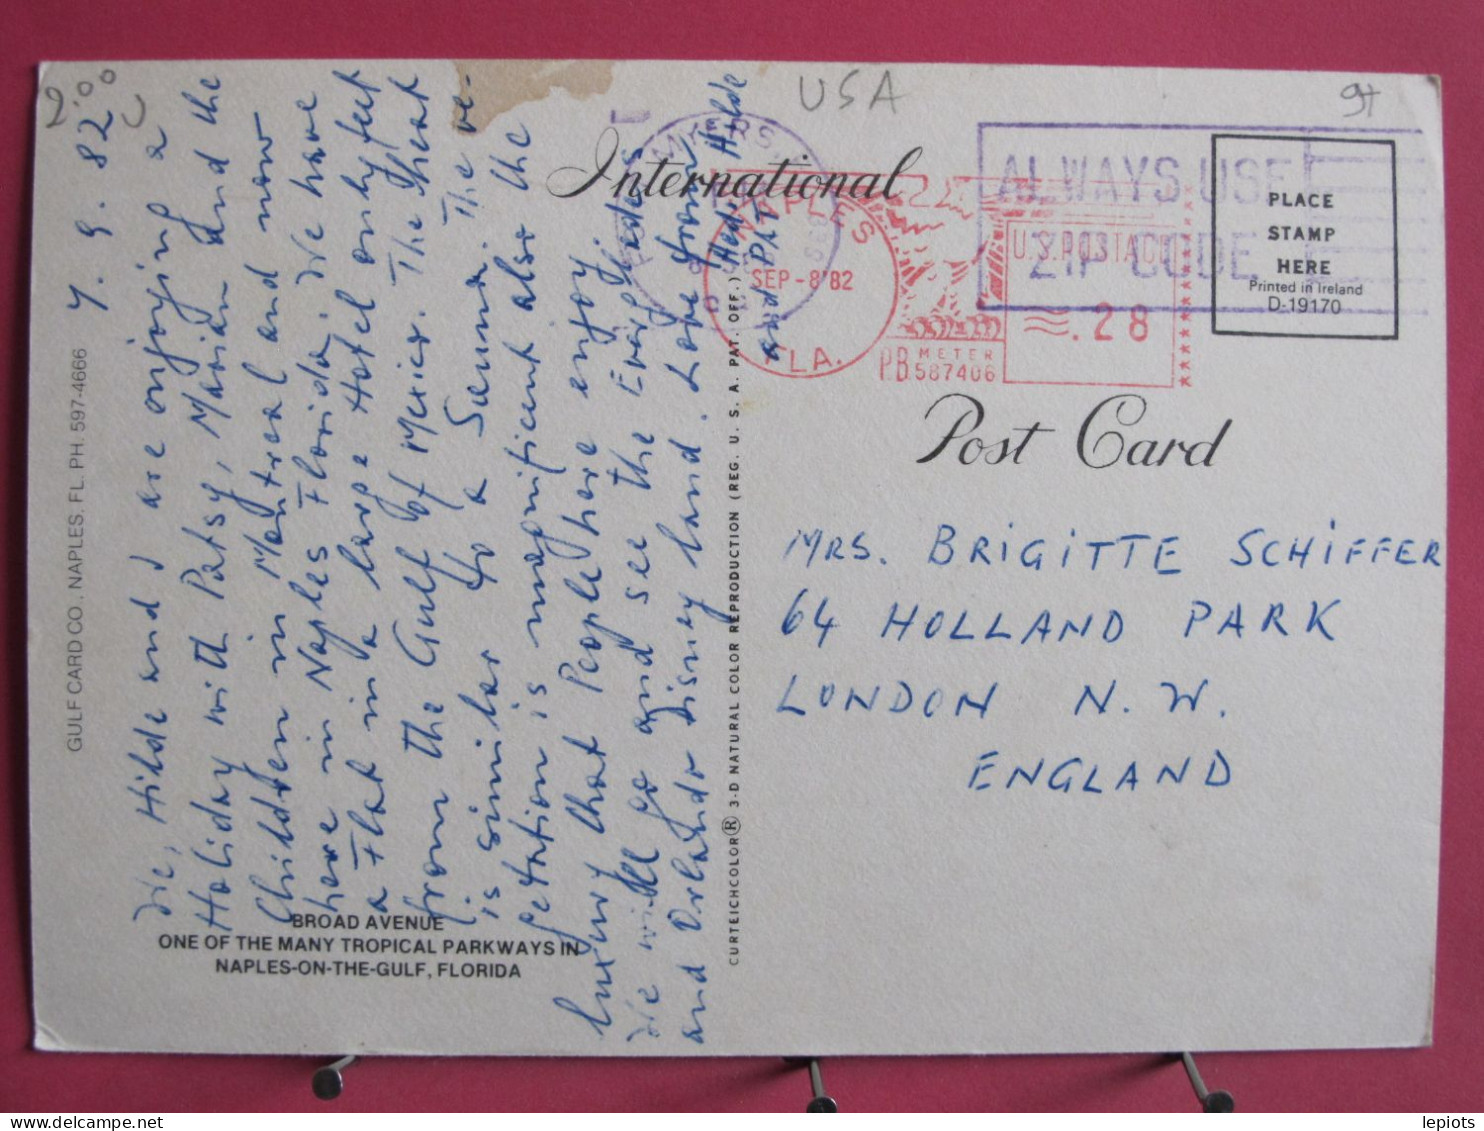 2.00
USA
7.9.82
We, Hilde and I are enjoying a
Holiday with Patsy, Marian and the
Children in Montreal and now
here in Naples Florida. We have
a Flat in a large Hotel only feet
from the Gulf of Mexico. The heat
is similar to a Sauna. The ve-
getation is magnificent also the
luxury that People here enjoy.
We will go and see the Everglades
and Orlando Disney land. Love from
Hilde
and Pat
and
GULF CARD CO., NAPLES, FL. PH. 597-4666
BROAD AVENUE
ONE OF THE MANY TROPICAL PARKWAYS IN
NAPLES-ON-THE-GULF, FLORIDA
CURTEICHCOLOR® 3-D NATURAL COLOR REPRODUCTION (REG. U. S. A. PAT. OFF.)
International
Post Card
MYERS,
NAPLES
SEP -8'82
FLA.
P.B. METER
587406
U.S. POSTAGE
.28
ALWAYS USE
ZIP CODE
PLACE
STAMP
HERE
Printed in Ireland
D-19170
MRS. BRIGITTE SCHIFFER
64 HOLLAND PARK
LONDON N.W.
ENGLAND
lepiots